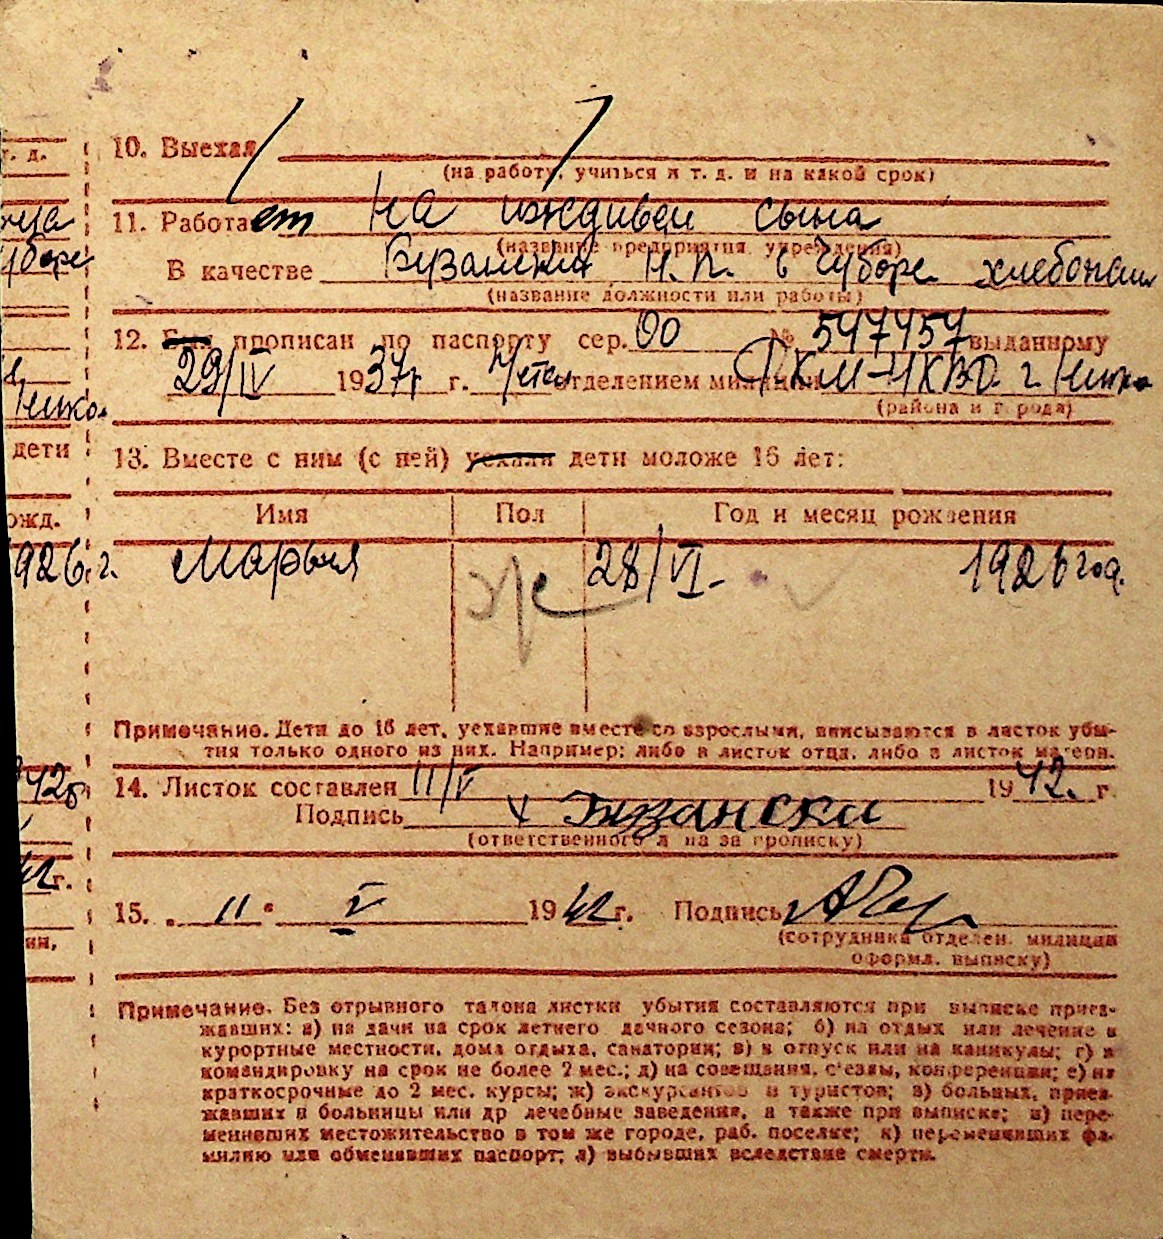 10. Выехал
(на работу, учиться и т. д. и на какой срок)
11. Работает на иждивен сына
(название предприятия, учреждения)
В качестве Бузанский Н. П. в Чуборе хлебопаш
(название должности или работы)
12. Был прописан по паспорту сер. 00 № 547457 выданному
29/IV 1937г г. отделением милиции РКМ-НКВД г.
(района и города)
13. Вместе с ним (с ней) уехали дети моложе 16 лет:
Имя Пол Год и месяц рождения
Мария ж 28/VI- 1926 год.
Примечание. Дети до 16 лет, уехавшие вместе со взрослыми, вписываются в листок убы-
тия только одного из них. Например: либо в листок отца, либо в листок матери.
14. Листок составлен 11/V 1942. г.
Подпись Бузански
(ответственного л на за прописку)
15. „ 11 " V 1942 г. Подпись
(сотрудника отделен. милиции
оформл. выписку)
Примечание. Без отрывного талона листки убытия составляются при выписке приез-
жавших: а) на дачи на срок летнего дачного сезона; б) на отдых или лечение в
курортные местности, дома отдыха, санатории; в) в отпуск или на каникулы; г) в
командировку на срок не более 2 мес.; д) на совещания, с'езды, конференции; е) на
краткосрочные до 2 мес. курсы; ж) экскурсантов и туристов; з) больных, приез-
жавших в больницы или др лечебные заведения, а также при выписке; и) пере-
менивших местожительство в том же городе, раб. поселке; к) переменивших фа-
милию или обменявших паспорт; л) выбывших вследствие смерти.
т. д.
дети
рожд.
926 г.
42г
г.